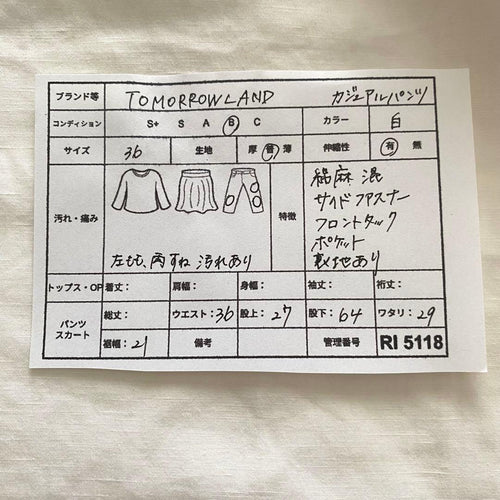 ブランド等 TOMORROWLAND カジュアルパンツ
コンディション S+ S A B C カラー 白
サイズ 36 生地 厚 普 薄 伸縮性 有 無
汚れ・痛み 左もも、両すね 汚れあり
特徴 綿麻 混
サイドファスナー
フロントタック
ポケット
裏地あり
トップス・OP 着丈： 肩幅： 身幅： 袖丈： 裄丈：
パンツ
スカート
総丈： ウエスト：36 股上：27 股下：64 ワタリ：29
裾幅：21 備考 管理番号 RI 5118